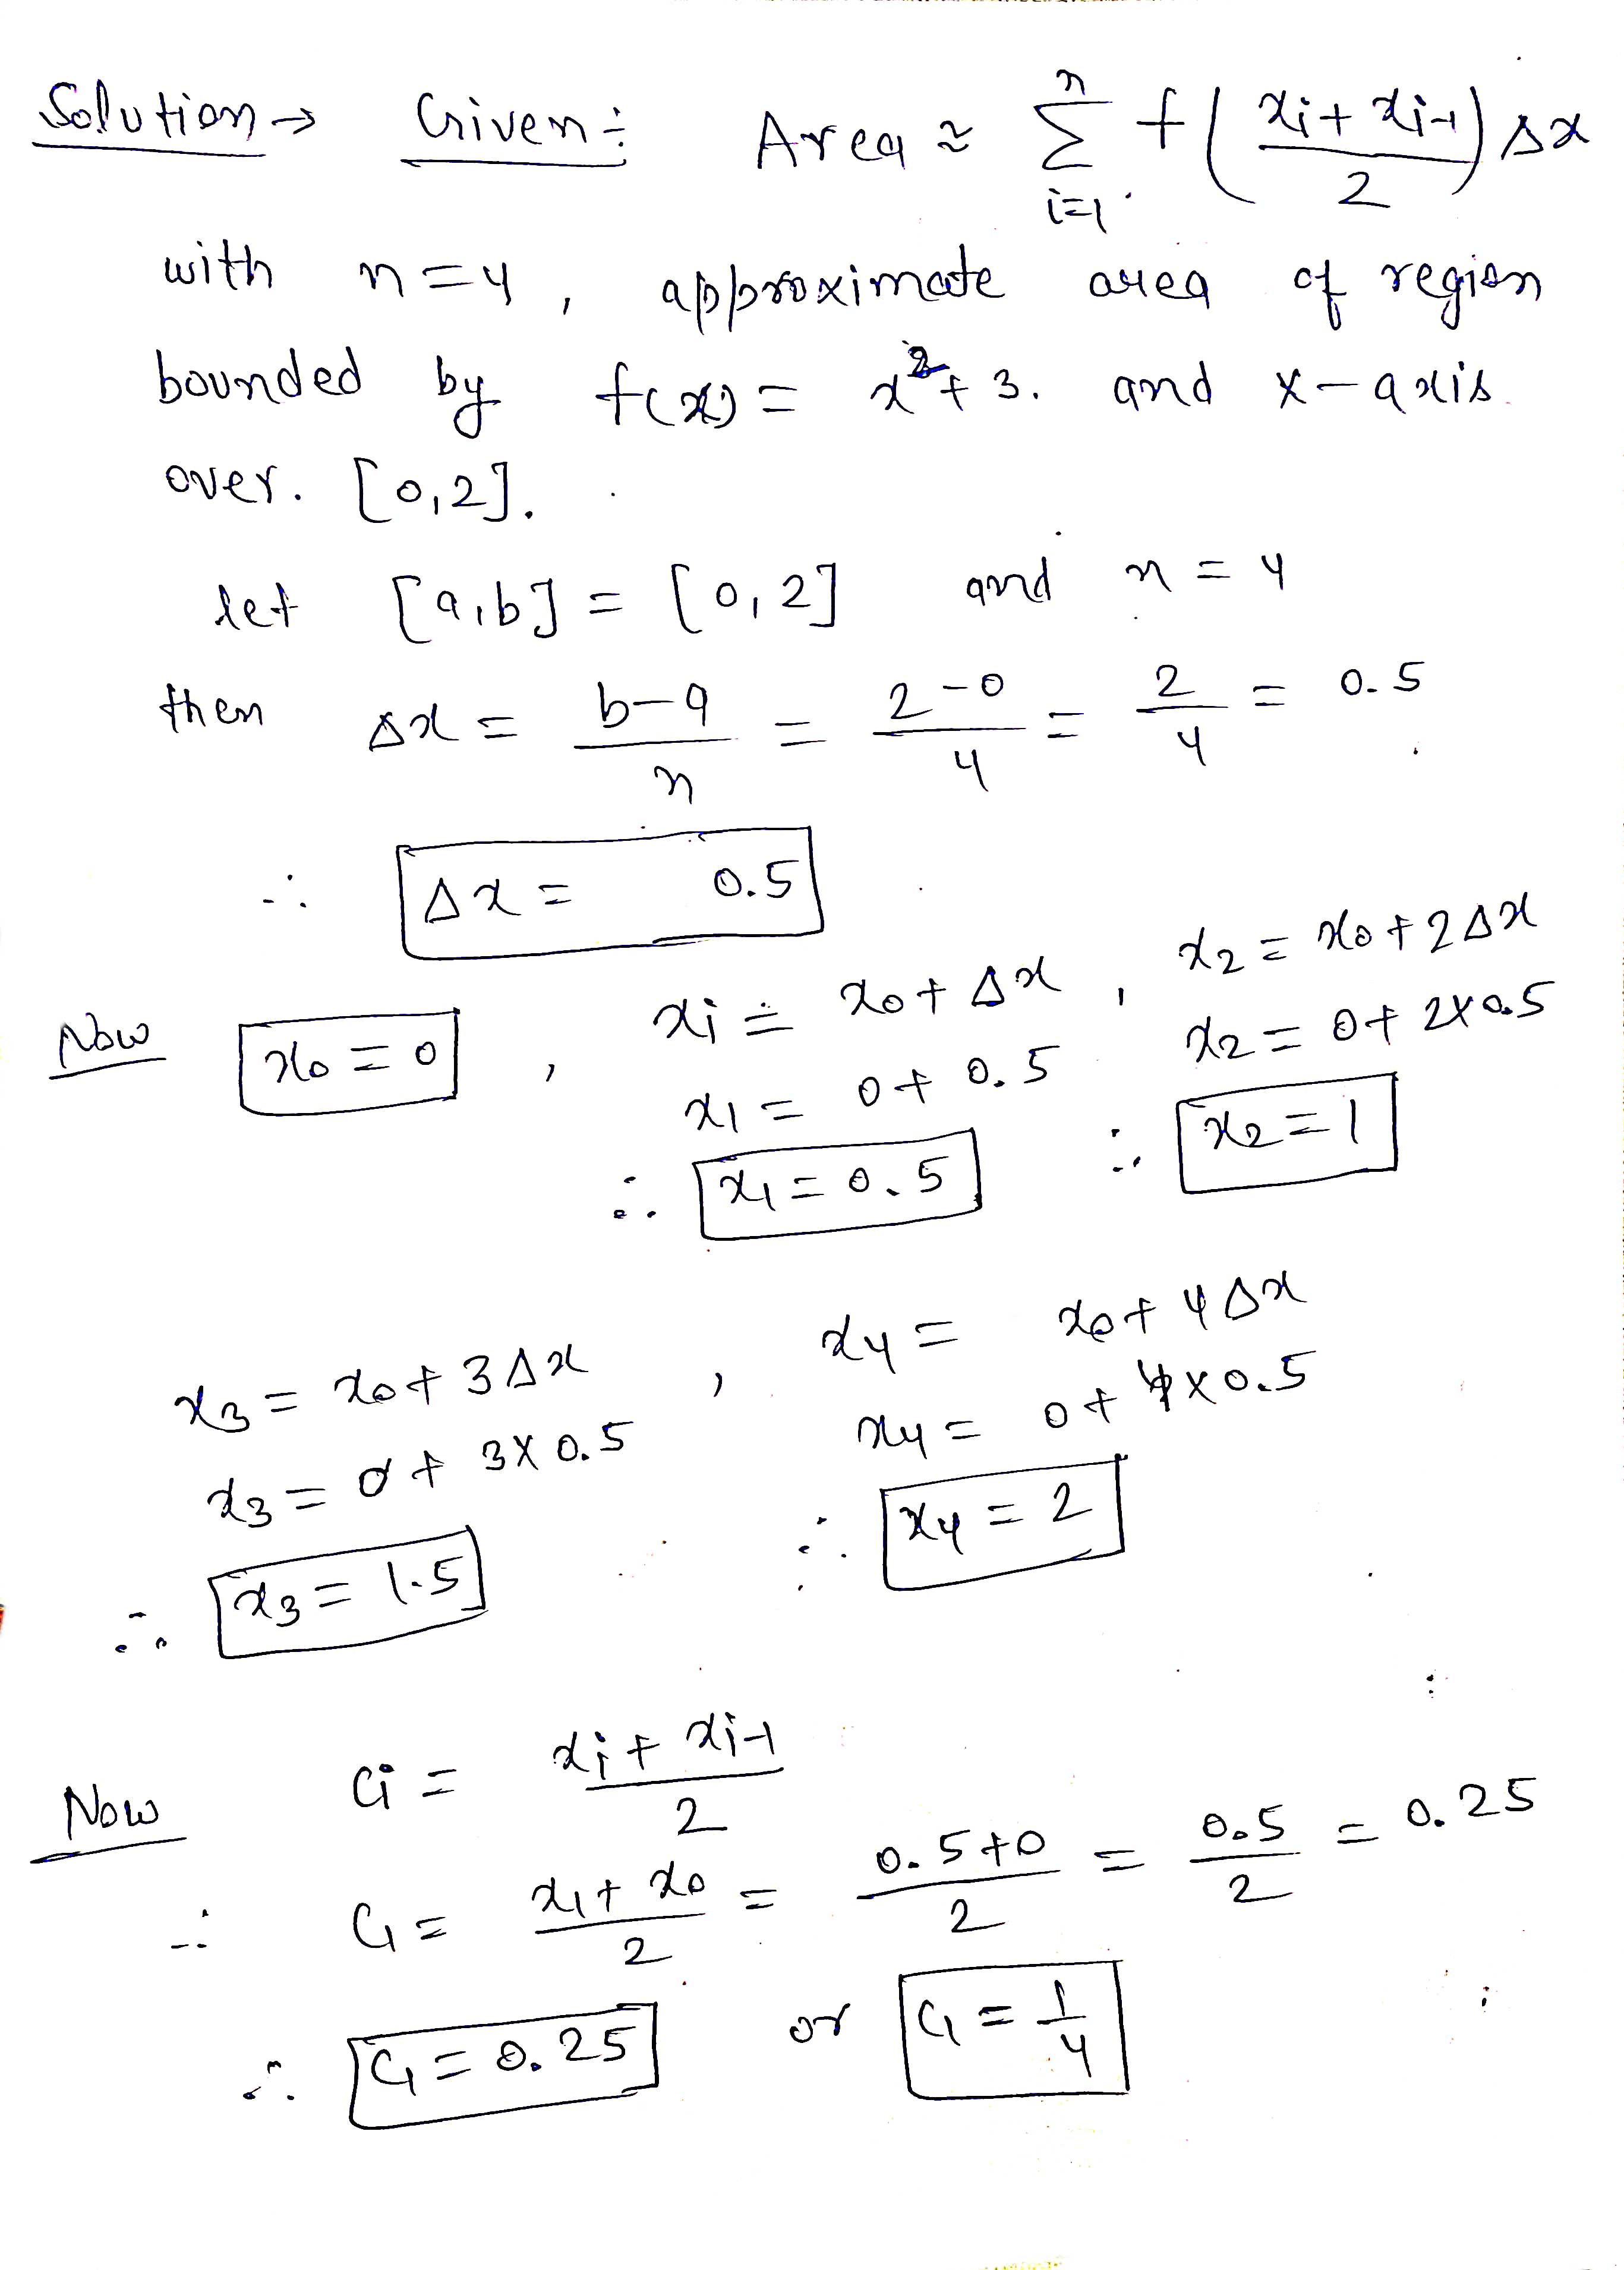 Solution → Given:- Area ≈ ∑_{i=1}^{n} f((xi + xi-1)/2) Δx
with n=4, approximate area of region
bounded by f(x) = x² + 3. and x-axis
over. [0,2].
let [a,b] = [0,2] and n=4
then Δx = (b-a)/n = (2-0)/4 = 2/4 = 0.5
∴ Δx = 0.5
Now x0 = 0, xi = x0 + Δx, x2 = x0 + 2Δx
x1 = 0 + 0.5 x2 = 0 + 2×0.5
∴ x1 = 0.5 ∴ x2 = 1
x3 = x0 + 3Δx, x4 = x0 + 4Δx
x3 = 0 + 3×0.5 x4 = 0 + 4×0.5
∴ x3 = 1.5 ∴ x4 = 2
Now Ci = (xi + xi-1)/2
∴ C1 = (x1 + x0)/2 = (0.5+0)/2 = 0.5/2 = 0.25
∴ C1 = 0.25 or C1 = 1/4